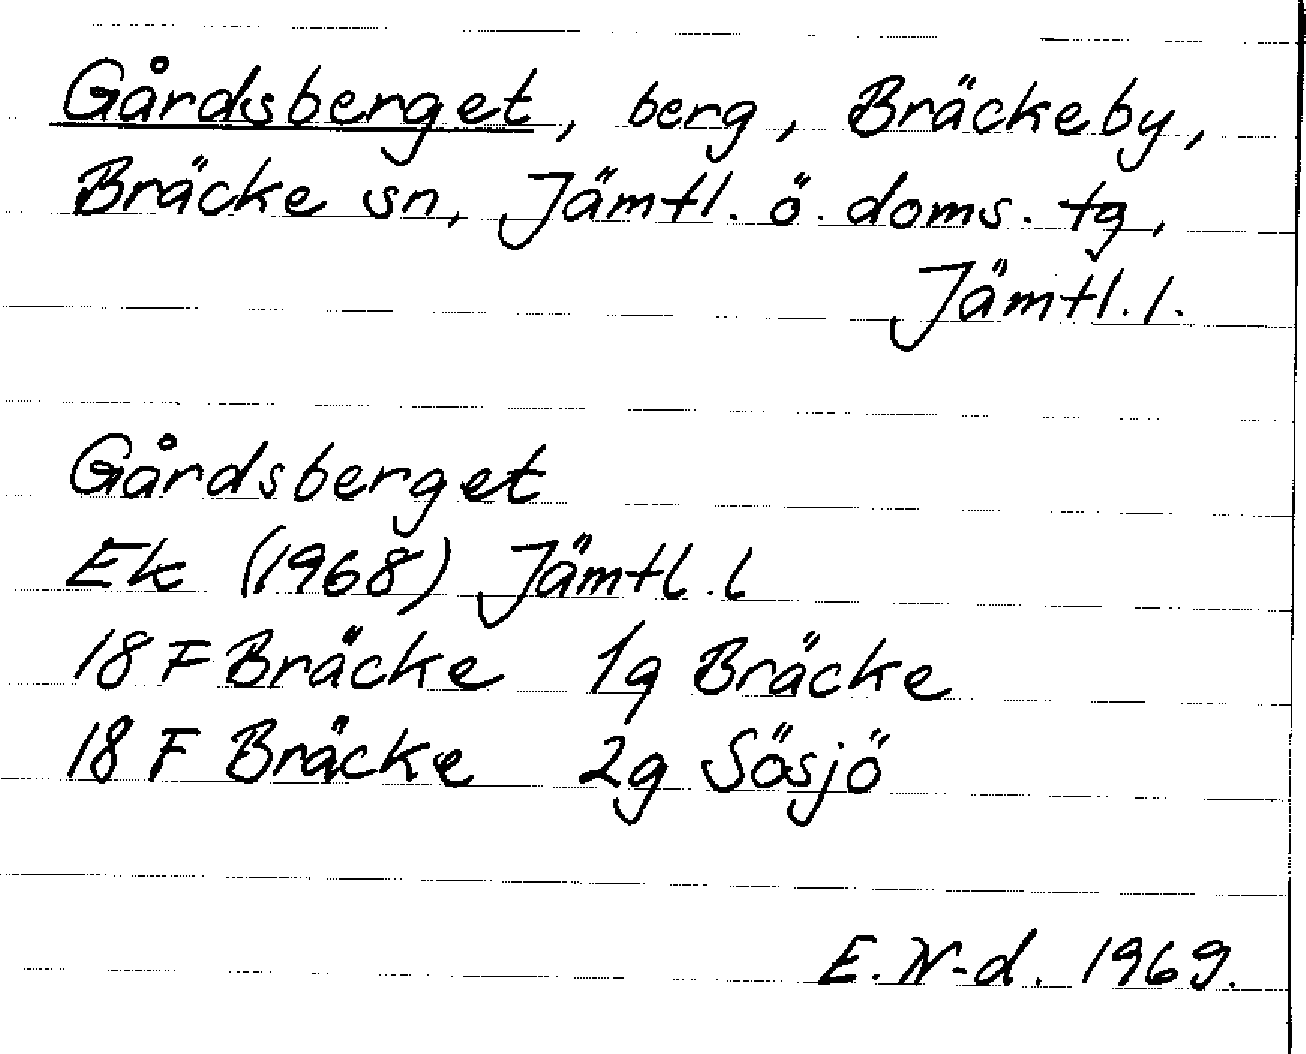 Gårdsberget, berg, Bräckeby,
Bräcke sn, Jämtl. ö. doms. tg,
Jämtl. l.
Gårdsberget
Ek (1968) Jämtl. l
18 F Bräcke 1g Bräcke
18 F Bräcke 2g Sösjö
E. W-d. 1969.